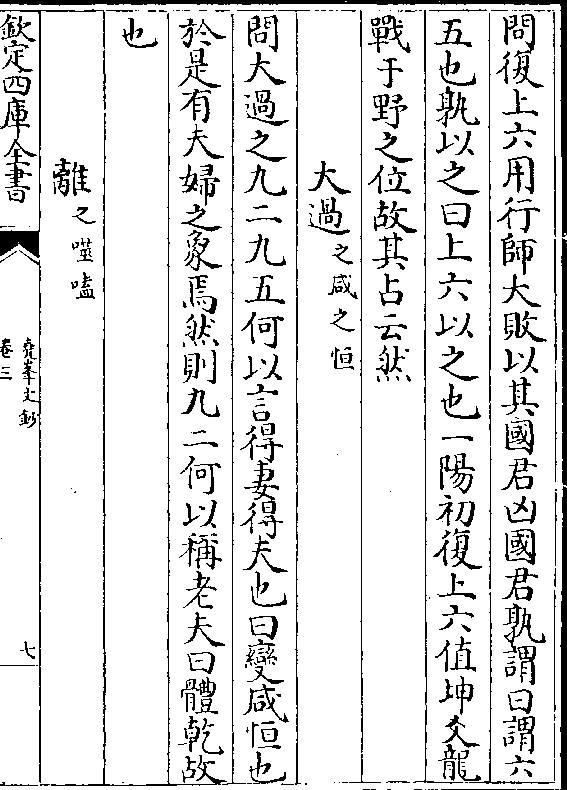 問復上六用行師大敗以其國君凶國君孰謂曰謂六
五也孰以之曰上六以之也一陽初復上六值坤爻龍
戰于野之位故其占云然
大過之咸之恒
問大過之九二九五何以言得妻得夫也曰變咸恒也
於是有夫婦之象焉然則九二何以稱老夫曰體乾故
也
離之噬嗑
欽定四庫全書
堯峯文鈔
卷三
七